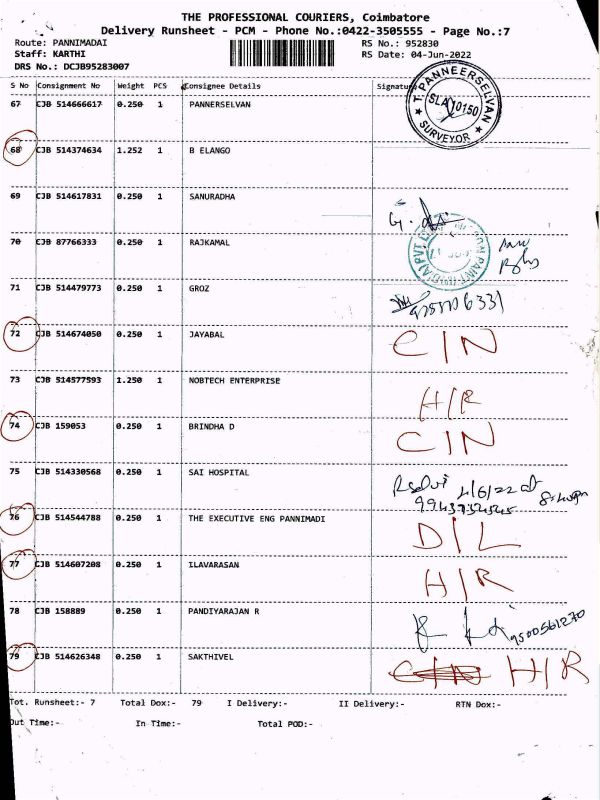 THE PROFESSIONAL COURIERS, Coimbatore
Delivery Runsheet - PCM - Phone No.:0422-3505555 - Page No.:7
Route: PANNIMADAI
RS No.: 952830
Staff: KARTHI
RS Date: 04-Jun-2022
DRS No.: DCJB95283007
S No Consignment No Weight PCS Consignee Details Signature
67 CJB 514666617 0.250 1 PANNERSELVAN
T.PANNEERSELVAN
SLA 10150
SURVEYOR
68 CJB 514374634 1.252 1 B ELANGO
69 CJB 514617831 0.250 1 SANURADHA
70 CJB 87766333 0.250 1 RAJKAMAL
71 CJB 514479773 0.250 1 GROZ
72 CJB 514674050 0.250 1 JAYABAL C/N
73 CJB 514577593 1.250 1 NOBTECH ENTERPRISE H/R
74 CJB 159053 0.250 1 BRINDHA D C/N
75 CJB 514330568 0.250 1 SAI HOSPITAL 4/6/22 at
76 CJB 514544788 0.250 1 THE EXECUTIVE ENG PANNIMADI D/L
77 CJB 514607208 0.250 1 ILAVARASAN H/R
78 CJB 158889 0.250 1 PANDIYARAJAN R 9500561270
79 CJB 514626348 0.250 1 SAKTHIVEL C/N H/R
Tot. Runsheet:- 7 Total Dox:- 79 I Delivery:- II Delivery:- RTN Dox:-
Out Time:- In Time:- Total POD:-